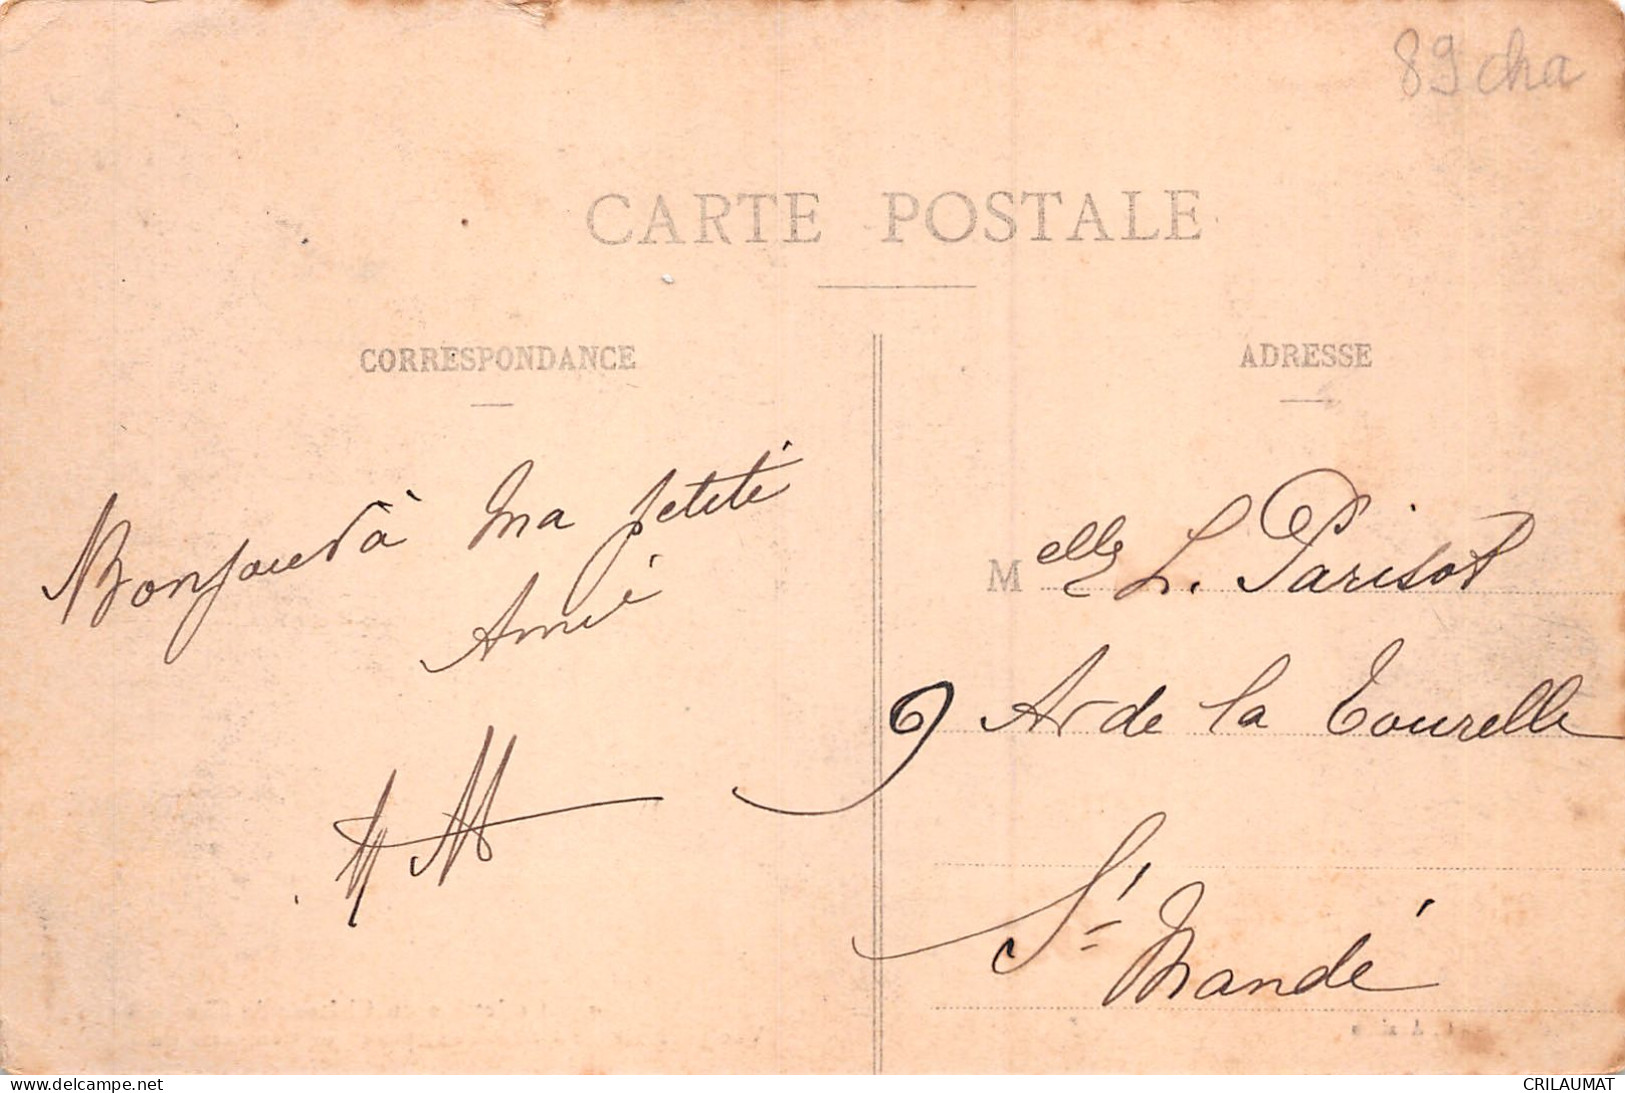 89 cha
CARTE POSTALE
CORRESPONDANCE
ADRESSE
Bonjour à ma petite
Amie
Melle L. Parisot
9 Av de la Tourelle
St Mandé
www.delcampe.net
CRILAUMAT